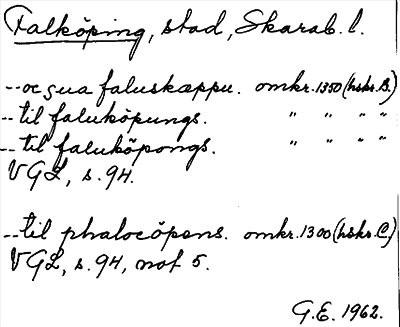 Falköping, stad, Skarab. l.
--oc sua faluskæppu. omkr. 1350 (hskr. B.)
--til faluköpungs. " " " "
--til faluköpongs. " " " "
VGL, s. 94.
--til phalocöpens. omkr. 1300 (hskr. C.)
VGL, s. 94, not 5.
G.E. 1962.